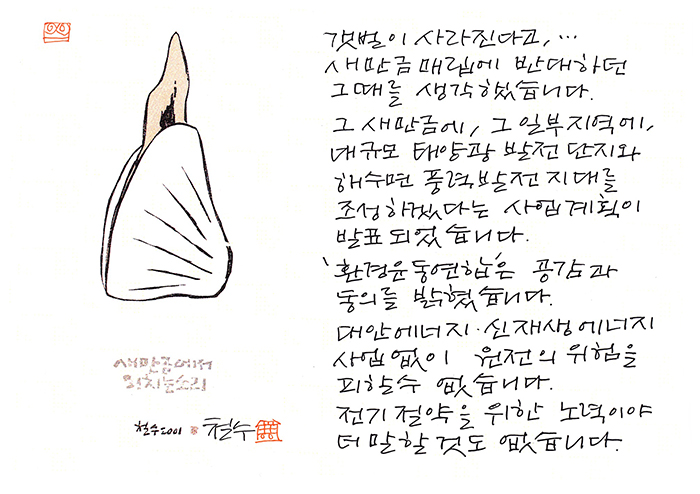 갯벌이 사라진다고, …
새만금매립에 반대하던
그때를 생각했습니다.
그 새만금에, 그 일부지역에,
대규모 태양광 발전 단지와
해수면 풍력발전 지대를
조성하겠다는 사업계획이
발표되었습니다.
'환경운동연합'은 공감과
동의를 밝혔습니다.
대안에너지·신재생에너지
사업 없이 원전의 위험을
피할수 없습니다.
전기 절약을 위한 노력이야
더 말할 것도 없습니다.
새만금에서
외치는소리
철수2001 철수